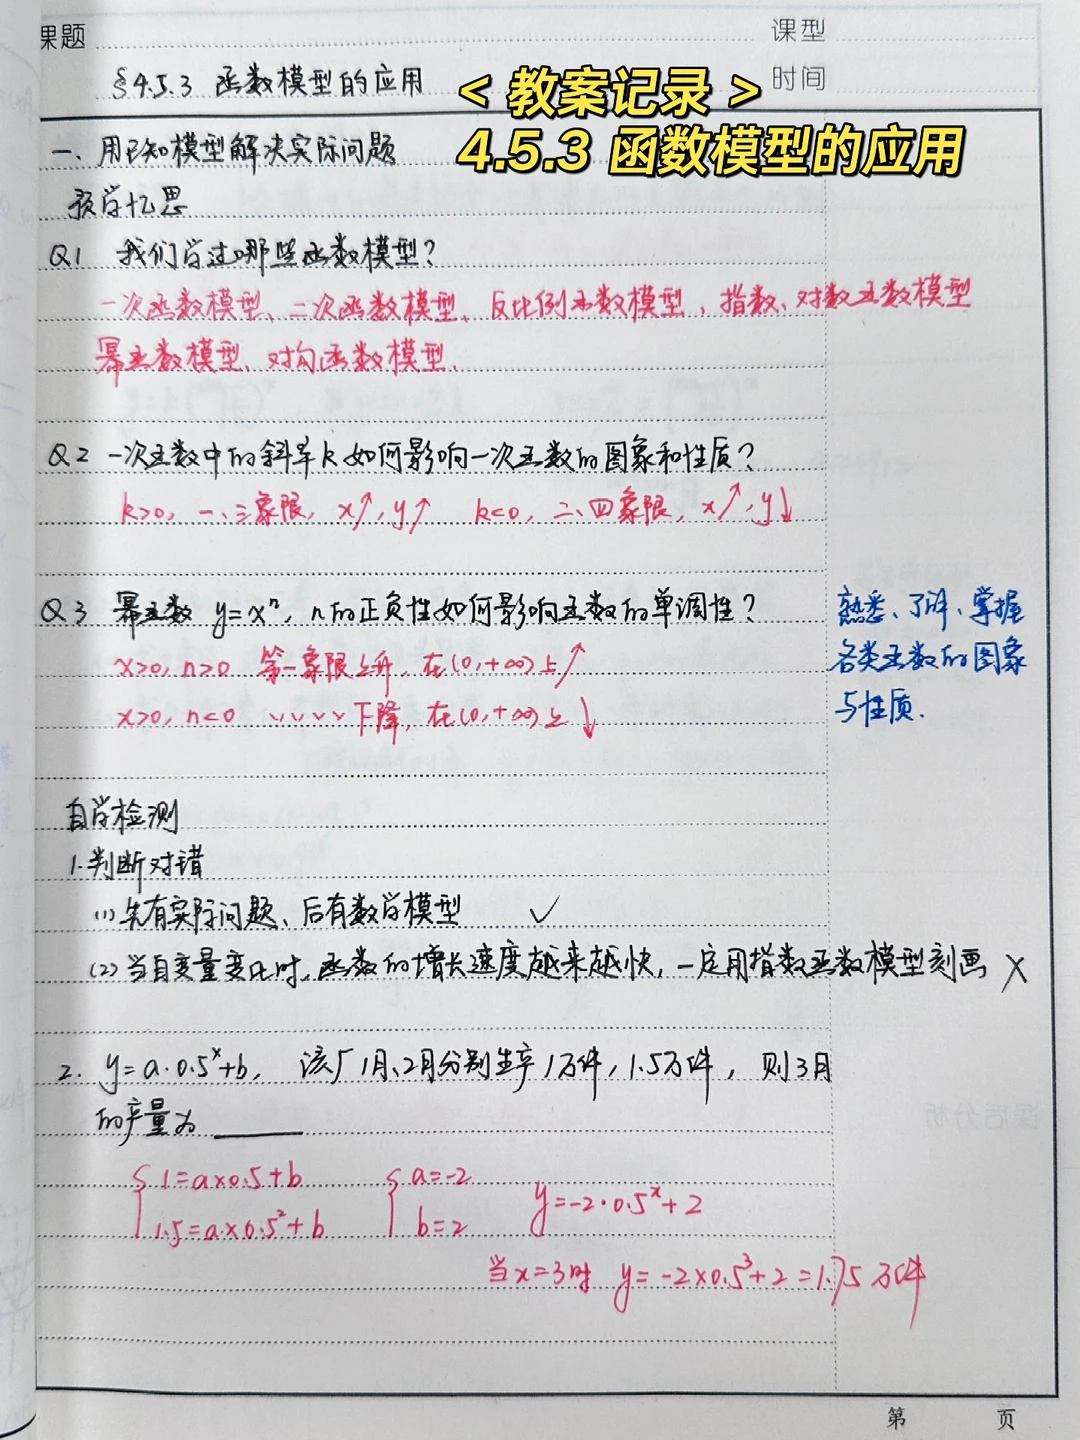 课题
课型
§4.5.3 函数模型的应用
时间
< 教案记录 >
4.5.3 函数模型的应用
一、用已知模型解决实际问题
预学忆思
Q1 我们学过哪些函数模型?
一次函数模型、二次函数模型、反比例函数模型,指数、对数函数模型
幂函数模型、对勾函数模型.
Q2 一次函数中的斜率k如何影响一次函数的图象和性质?
k>0, 一、三象限, x↑,y↑ k<0, 二、四象限, x↑,y↓
Q3 幂函数 y=xⁿ, n的正负性如何影响函数的单调性?
x>0, n>0 第一象限上升, 在(0,+∞)上↑
x>0, n<0 、、、、 下降, 在(0,+∞)上↓
熟悉、了解、掌握
各类函数的图象
与性质.
自学检测
1.判断对错
(1) 先有实际问题、后有数学模型 ✓
(2) 当自变量变化时,函数的增长速度越来越快,一定用指数函数模型刻画 ×
2. y=a·0.5ˣ+b, 该厂1月、2月分别生产1万件,1.5万件, 则3月
的产量为______
{1=a×0.5+b {a=-2
1.5=a×0.5²+b b=2 y=-2·0.5ˣ+2
当x=3时 y=-2×0.5³+2=1.75万件
课后分析
第 页